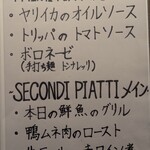 ・ヤリイカのオイルソース
・トリッパのトマトソース
・ボロネーゼ
(手打ち麺 トンナレッリ)
-SECONDI PIATTI メイン
・本日の鮮魚のグリル
・鴨ムネ肉のロースト